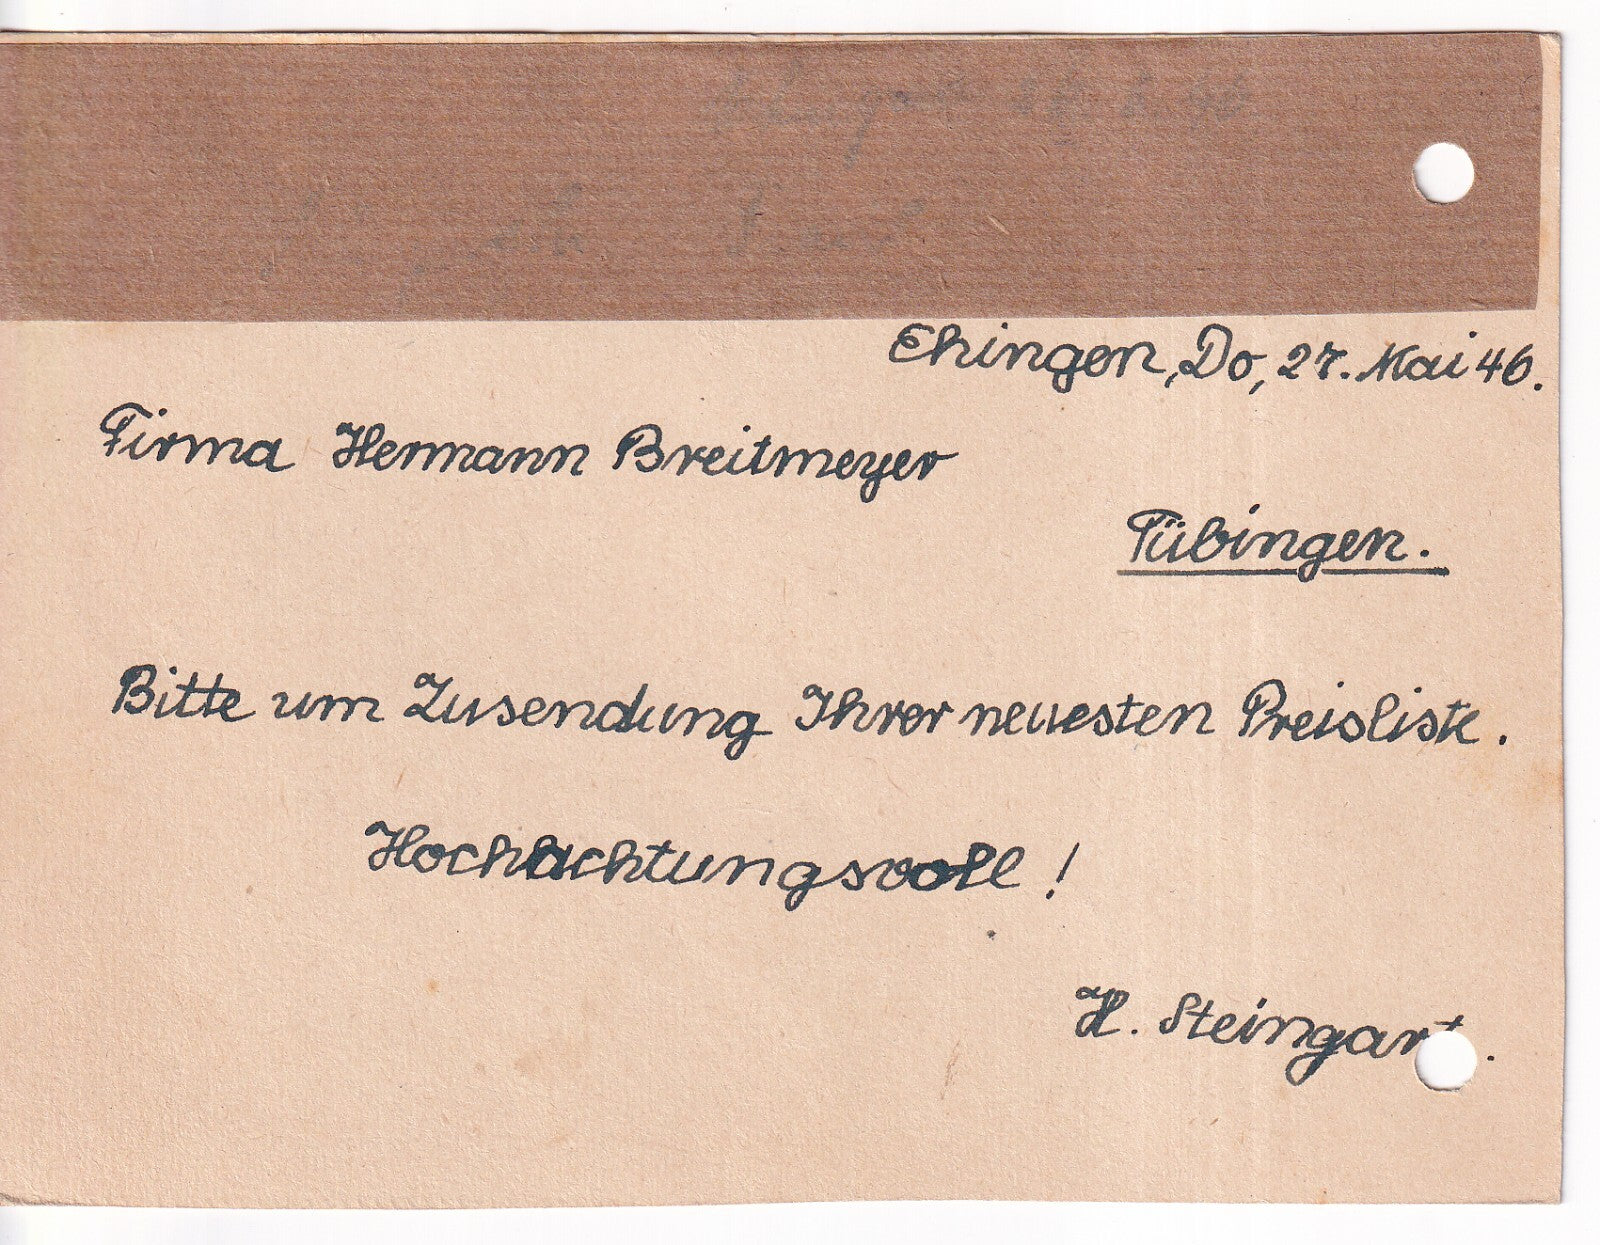 Ehingen, Do, 27. Mai 46.
Firma Hermann Breitmeyer
Tübingen.
Bitte um Zusendung Ihrer neuesten Preisliste.
Hochachtungsvoll !
H. Steingart.